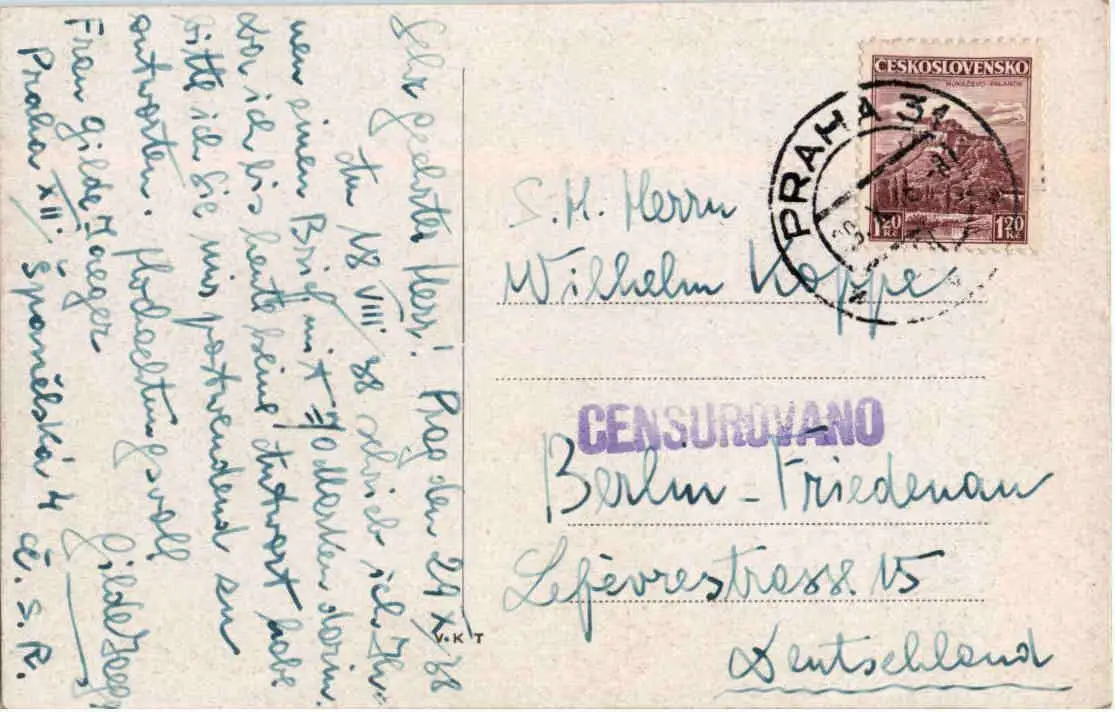 Sehr geehrter Herr! Prag den 29 X/38
Am 18 VIII 38 schrieb ich Ih-
nen einen Brief mit 70 Marken darin.
Da ich bis heute keine Antwort habe
bitte ich Sie mir postwendend zu
antworten. Hochachtungsvoll
Frau Gilde Jaeger
Praha XII. Španělská 4 Č.S.R.
Gilde Jaeger
V.K T
ČESKOSLOVENSKO
1.20 Kč
1.20 Kč
PRAHA 31
S.H. Herrn
Wilhelm Koppe
CENSUROVÁNO
Berlin - Friedenau
Lefèvrestrasse 15
Deutschland